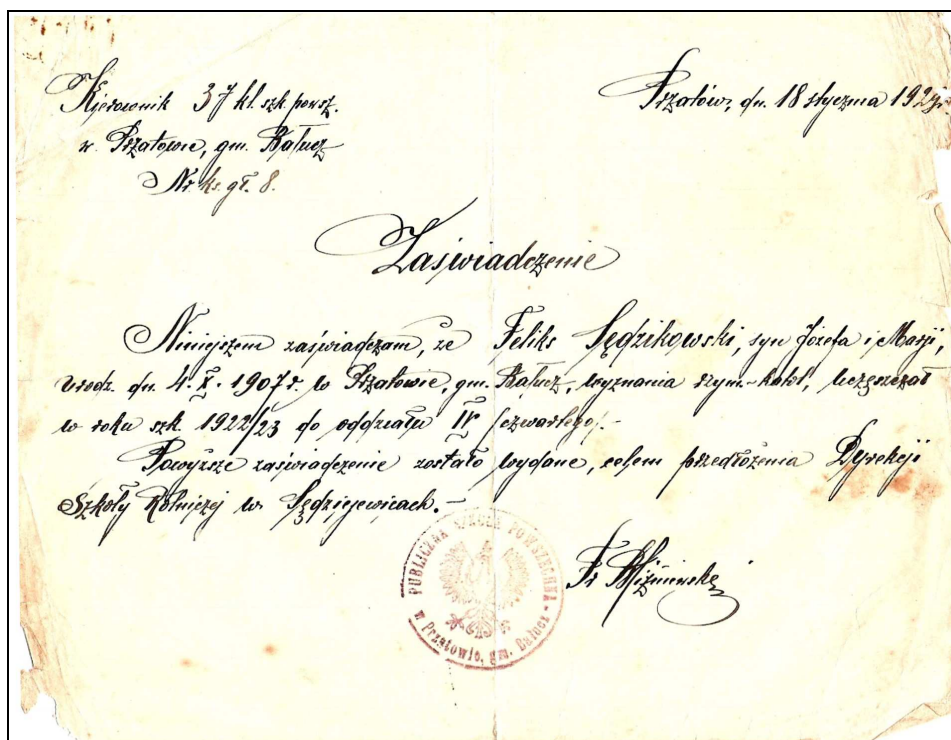 Kierownik 3 kl. szk. powsz.
w Przatowie, gm. Bałucz
Nr ks. gł. 8.
Przatów, dn. 18 stycznia 192
Zaświadczenie
Niniejszem zaświadczam, że Feliks Sędzikowski, syn Józefa i Marji,
urodz. dn. 4. X. 1907 r. w Przatowie, gm. Bałucz, wyznania rzym.-katol., uczęszczał
w roku szk. 1922/23 do oddziału IV /czwartego/.-
Powyższe zaświadczenie zostało wydane, celem przedłożenia Dyrekcji
Szkoły Rolniczej w Sędziejewicach.-
Fr.
PUBLICZNA SZKOŁA POWSZECHNA
w Przatowie, gm. Bałucz